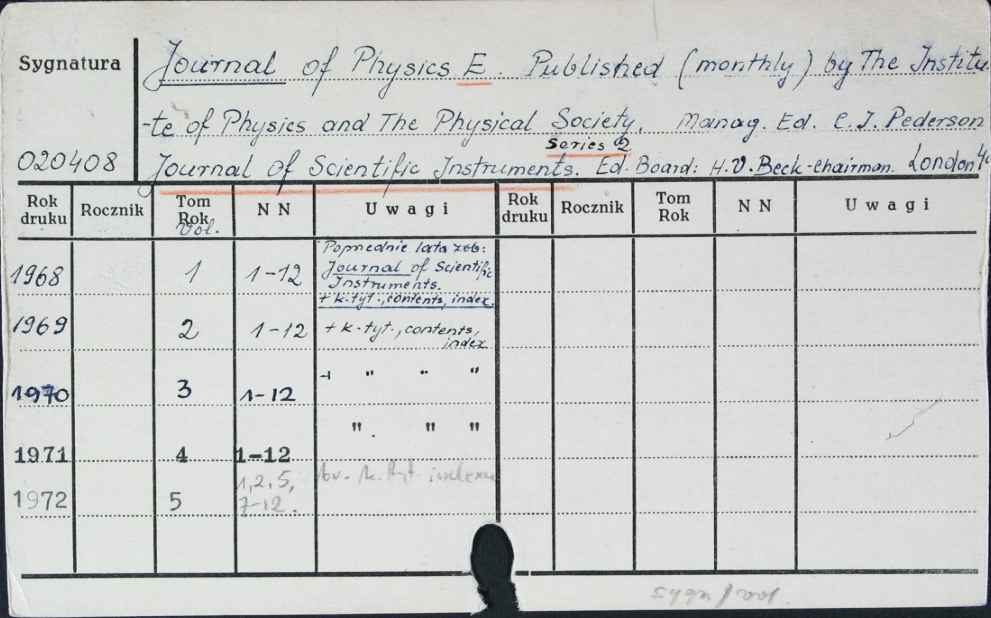 Sygnatura Journal of Physics E. Published (monthly) by The Institu-
-te of Physics and The Physical Society. Manag. Ed. C.I. Pederson
Series 2
020408 Journal of Scientific Instruments. Ed. Board: H.V. Beck-chairman. London
Rok druku Rocznik Tom Rok Vol. NN Uwagi Rok druku Rocznik Tom Rok NN Uwagi
Poprzednie lata zob:
1968 1 1-12 Journal of Scientific
Instruments.
+ k. tyt., contents, index.
1969 2 1-12 + k. tyt., contents,
index
1970 3 1-12 " " "
1971 4 1-12 " " "
1972 5 1,2,5,
7-12.